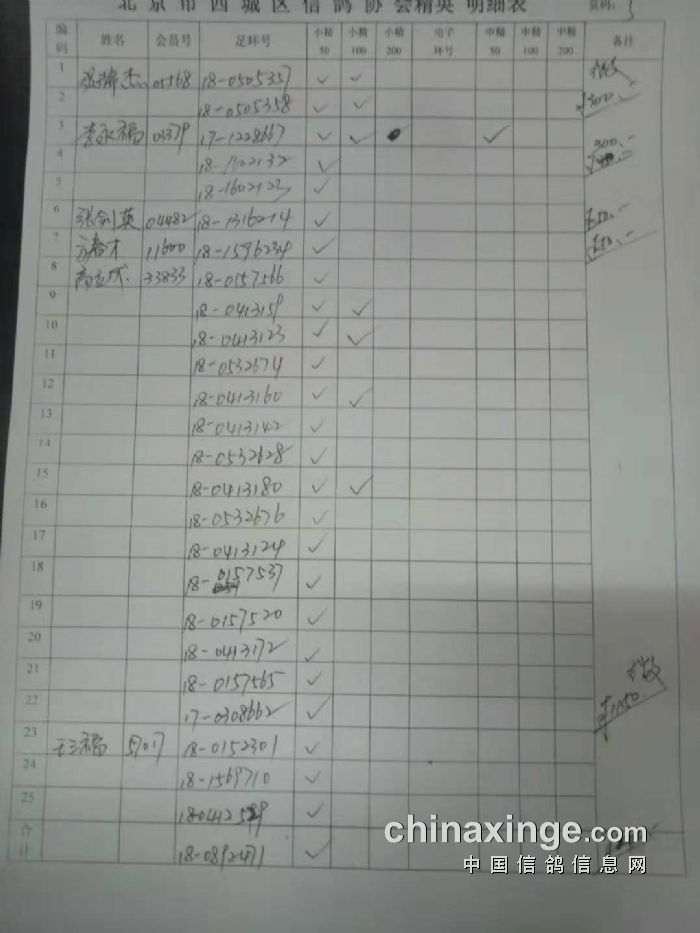 北京市西城区信鸽协会精英 明细表 页码: 3
编码 姓名 会员号 足环号 小精50 小精100 小精200 电子环号 中精50 中精100 中精200 备注
1 05168 18-0505357 ✓ ✓
2 18-0505358 ✓ ✓ ¥300.-
3 李永福 03379 17-1228667 ✓ ✓ ✓ 200.-
4 18-1102132 ✓
5 18-1602123 ✓
6 张剑英 04482 18-1316214 ✓ ¥50.-
7 方春才 11600 18-1596234 ✓ ¥50.-
8 33833 18-0157566 ✓
9 18-0413159 ✓ ✓
10 18-0413123 ✓ ✓
11 18-0532674 ✓
12 18-0413160 ✓ ✓
13 18-0413142 ✓
14 18-0532628 ✓
15 18-0413180 ✓ ✓
16 18-0532676 ✓
17 18-0413124 ✓
18 18-0157537 ✓
19 18-0157520 ✓
20 18-0413172 ✓
21 18-0157565 ✓
22 17-0308662 ✓ ¥1150
23 王三福 18-0152301 ✓
24 18-1569710 ✓
25 ✓
合计 18-0892471 ✓
chinaxinge.com
中国信鸽信息网